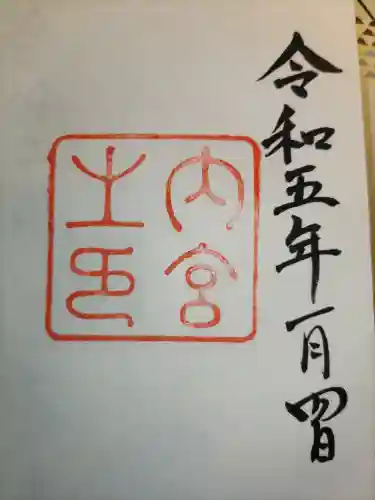 令和五年一月四日
内宮
之印